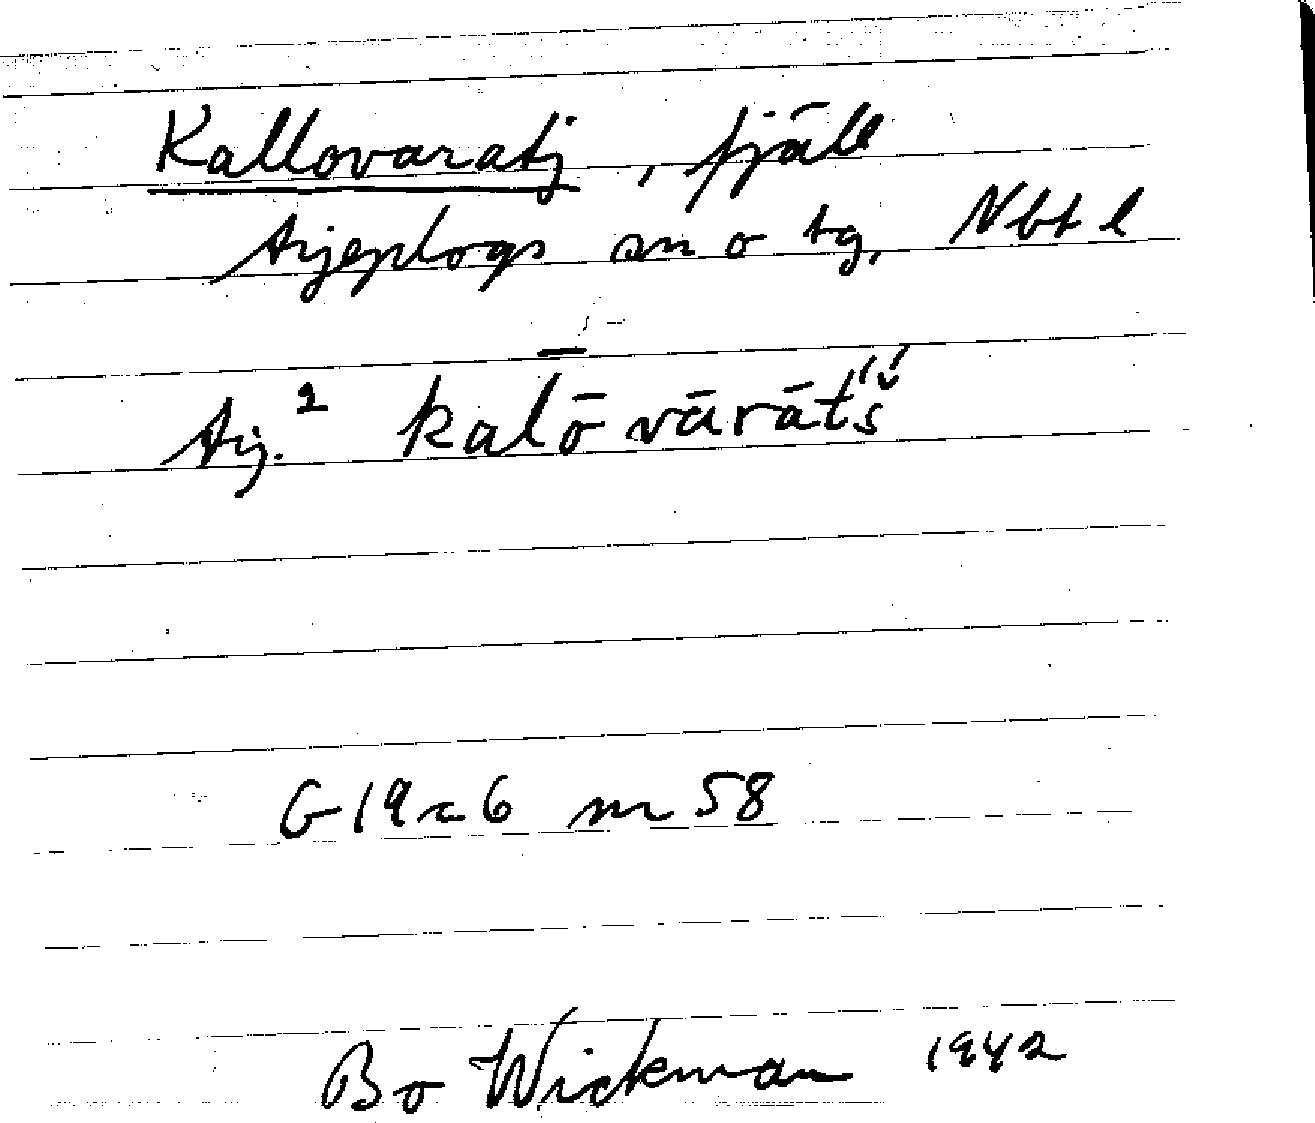 Kallovaratj, fjäll
Arjeplogs sn o tg, Nbt l
Arj.² kal̄ō vārātś̌
G 19 c 6 nr 58
Bo Wickman 1942